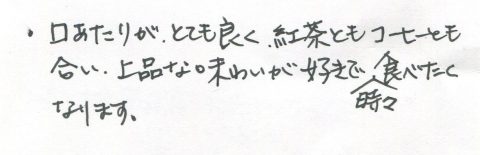 ・口あたりが、とても良く、紅茶ともコーヒーとも
合い、上品な味わいが好きで、時々食べたく
なります。